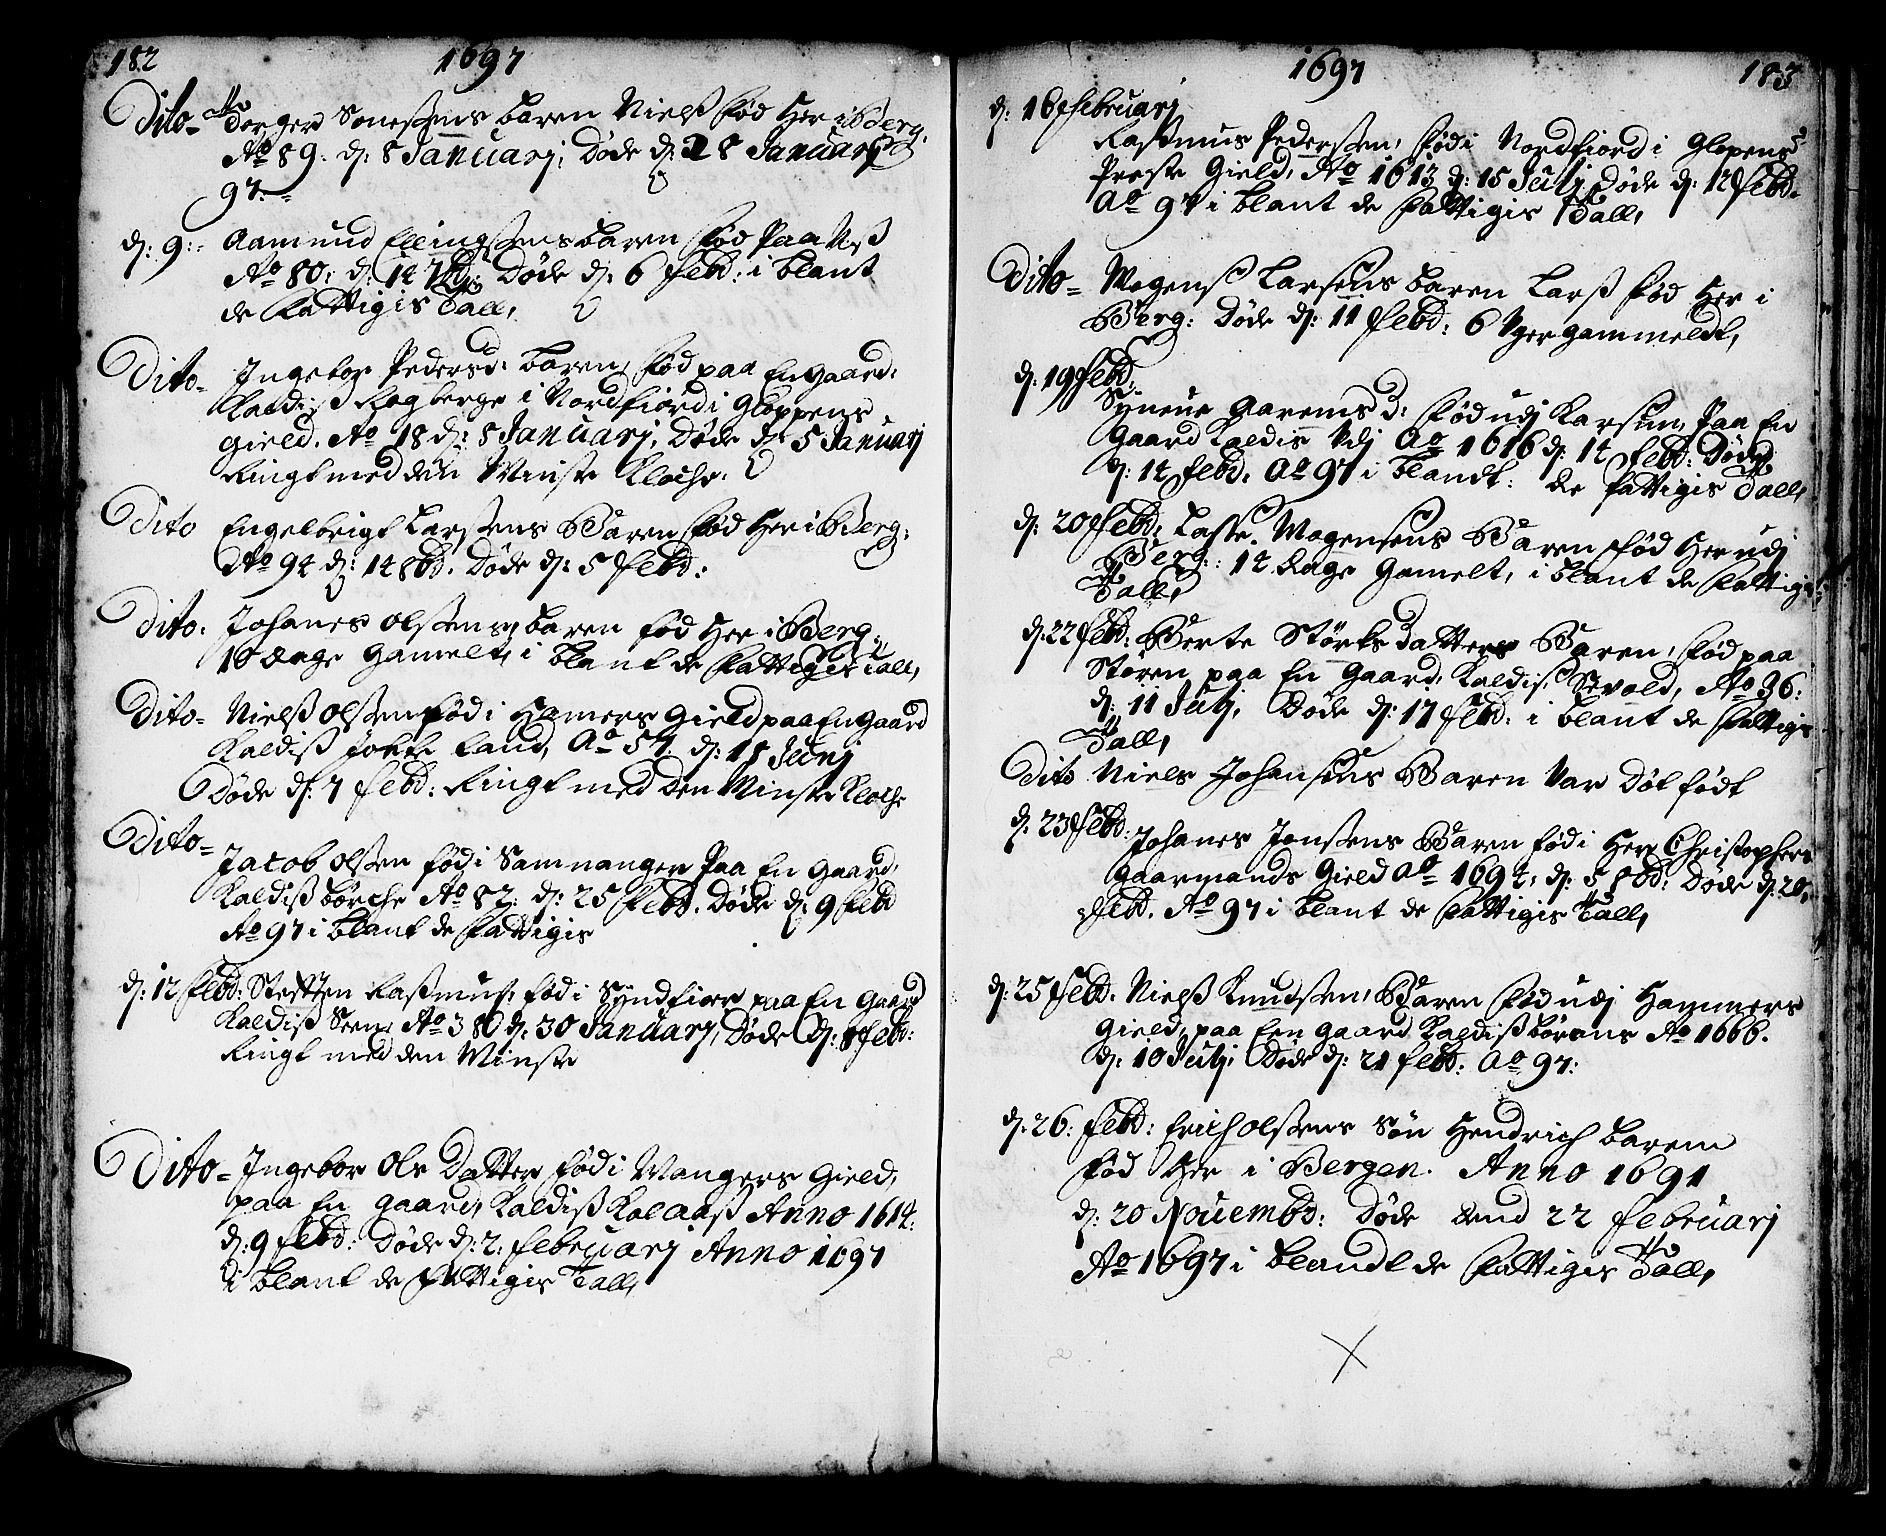 182 1697
Dito- Torger Sonessens baren Nielß fød Her i Berg:
Ao 89: d: 8 Januarj, Døde d: 28 Januarj
97.-
d: 9:- Aamund Ellingssens baren fød Paa
Ao 80: d: 14 7bd: Døde d: 6 Febd: i blant
de fattigis Tall,
Dito- Ingebor Pedersd: baren, fød paa En gaard,
Kaldis Rogberge i Nordfiord i Gloppens
gield. Ao 18 d: 8 Januarj, Døde d: 5 Januarj
Ringt med den Minste Kloche.
Dito Engelbrigt Larssens Baren fød Her i Berg:
Ao 94 d: 14 8bd. Døde d: 5 Febd:
Dito: Johanes Olssens baren fød Her i Berg:
10 dage Gamelt, i blant de fattigis Tall,
Dito- Nielß Olssen fød i Hamers Gield paa En gaard
Kaldiß land, Ao 57. d: 18 Junj
Døde d: 7 Febd: Ringt med Den Minste Kloche
Dito- Jacob Olssen fød i Samnanger Paa En Gaard,
Kaldiß børche Ao 82: d: 25 Febd. Døde d: 9 Febd
Ao 97 i blant de fattigis
d: 12 Febd: Rasmus: fød i Syndfior paa En Gaard
Kaldiß Ao 38 d: 30 Januarj, Døde d: 8 Febd:
Ringt med den Minste
Dito- Ingebor Ols Datter fød i Wangers Gield,
paa En gaard, Kaldiß Kalaaß Anno 1614:
d: 9 Febd: Døde d: 2: Februarj Anno 1697
i blant de fattigis Tall,
1697 183
d: 16 Februarj
Rasmus Pederssen, fød i Nordfiord i Glopens
Preste Gield, Ao 1613 d: 15 Julj Døde d: 12 Febd.
Ao 97 i blant de fattigis Tall,
Dito- Mogenß Larsens baren Larß fød Her i
Berg: Døde d: 11 Febd: 6 Vger gammeldt,
d: 19 Febd:
Syneue Aarems D: fød udj Karsun, Paa En
Gaard Kaldis Ao 1616 d: 14 Febd: Døde
d: 14 Febd: Ao 97 i blandt: de fattigis Tall,
d: 20 Febd: Lasse Mogensens Baren fød Her udj
Berg:: 14 dage Gamelt, i blant de fattigis
Tall,
d: 22 Febd: Berte Størks datters Baren, fød paa
Storen paa En Gaard, Kaldis Ao 36:
d: 11 Julj, Døde d: 17 Febd: i blant de fattigis
Tall,
Dito Niels Johansens Baren Var Døt født
d: 23 Febd: Johanes Jonssens Baren fød i Her Christophers
Gaarmands Gield Ao 1694: d: 5 8bd: Døde d: 20,
Febd. Ao 97 i blant de fattigis Tall,
d: 25 Febd: Nielß Knudssen, Baren fød udj Hammers
Gield, paa Een gaard Kaldiß Ao 1666.
d: 10 Julj, Døde d: 21 Febd: Ao 97:
d: 26: Febd: Erich Olssens Søn Hendrich barem
fød Her i Bergen. Anno 1691
d: 20 Nouembd: Døde dend 22 Februarj
Ao 1697 i blandt de fattigis Tall,